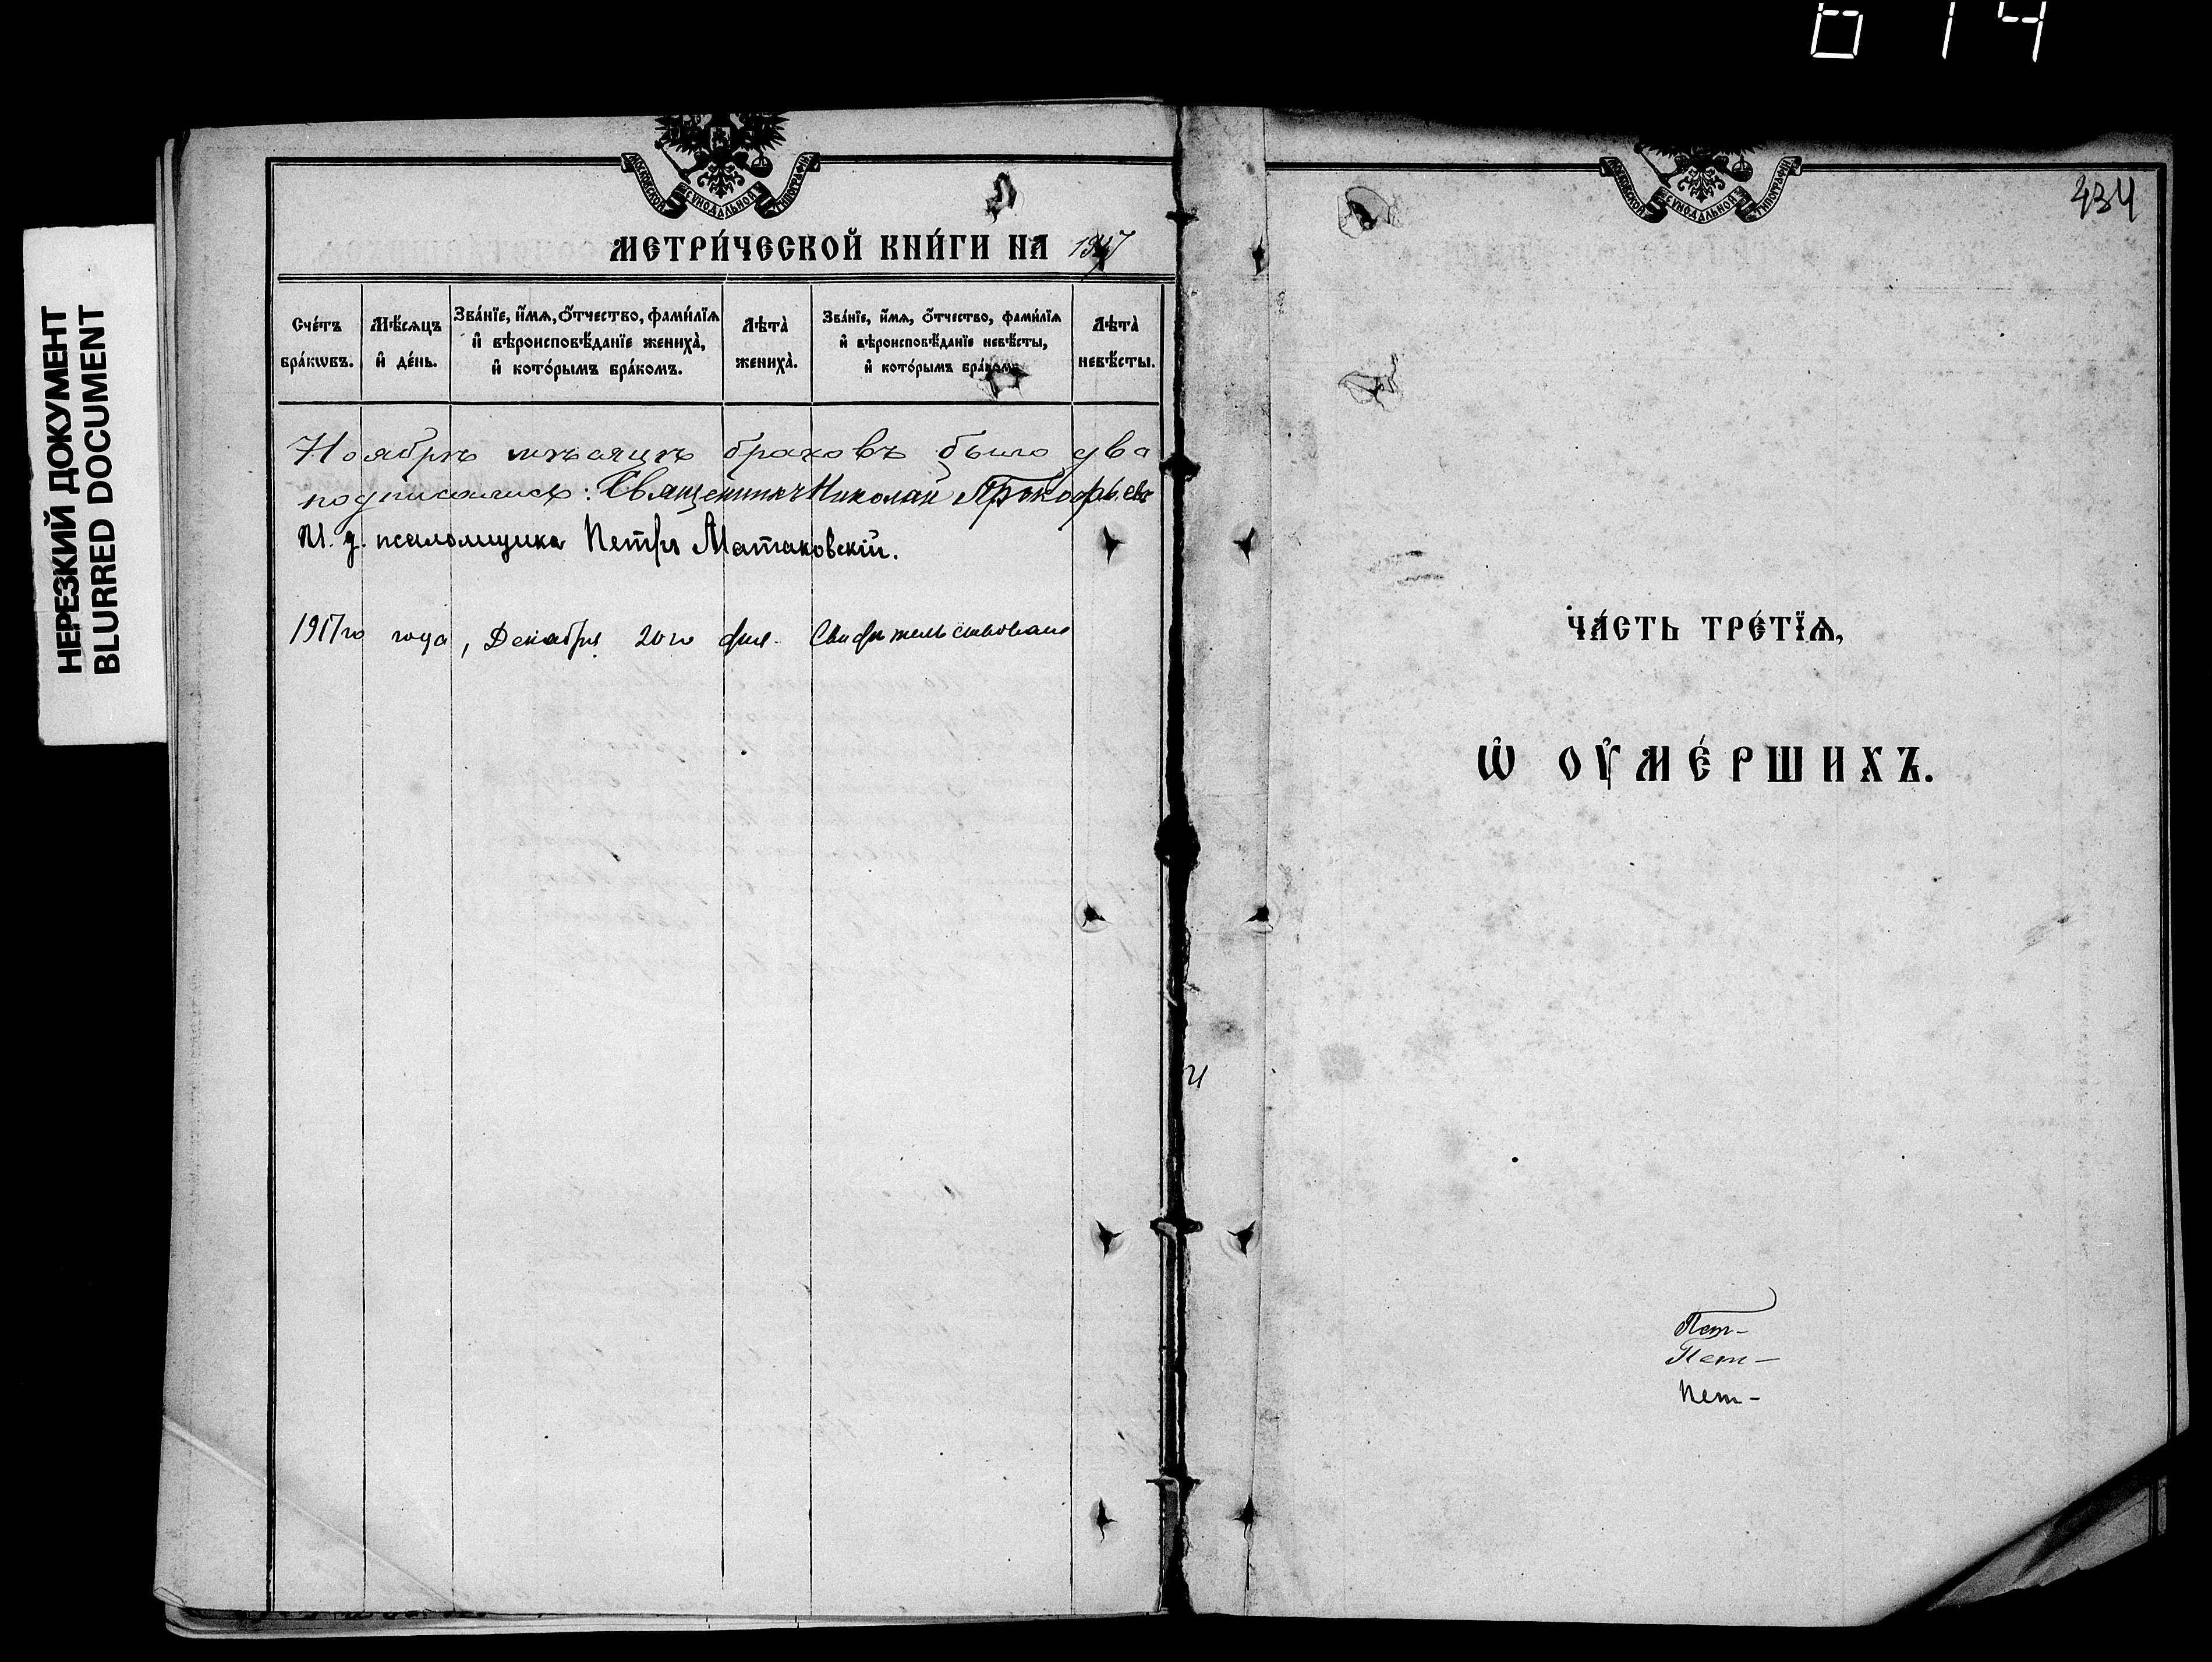 614
НЕРЕЗКИЙ ДОКУМЕНТ
BLURRED DOCUMENT
МОСКОВСКОЙ СѴНОДАЛЬНОЙ ТИПОГРАФІИ
МЕТРИ́ЧЕСКОЙ КНИ́ГИ НА 1917
Сче́тъ бра́кѡвъ.
Мѣ́сяцъ и҆ де́нь.
Зва́нїе, и҆́мѧ, ѻ҆́тчество, фами́лїѧ и҆ вѣроисповѣ́данїе жениха̀, и҆ кото́рымъ бра́комъ.
Лѣта̀ жениха̀.
Зва́нїе, и҆́мѧ, ѻ҆́тчество, фами́лїѧ и҆ вѣроисповѣ́данїе невѣ́сты, и҆ кото́рымъ бра́комъ
Лѣта̀ невѣ́сты.
Ноябрѣ мѣсяцѣ браковъ было два
подписались: Священникъ Николай Прокофьевъ
И. д. псаломщика Петръ Матаковскій.
1917го года, Декабря 20го дня. Свидѣтельствовано
МОСКОВСКОЙ СѴНОДАЛЬНОЙ ТИПОГРАФІИ
434
ЧА́СТЬ ТРЕ́ТЇѦ,
Ѡ҆ ОУ҆МЕ́РШИХЪ.
Пет-
Пет-
Пет-